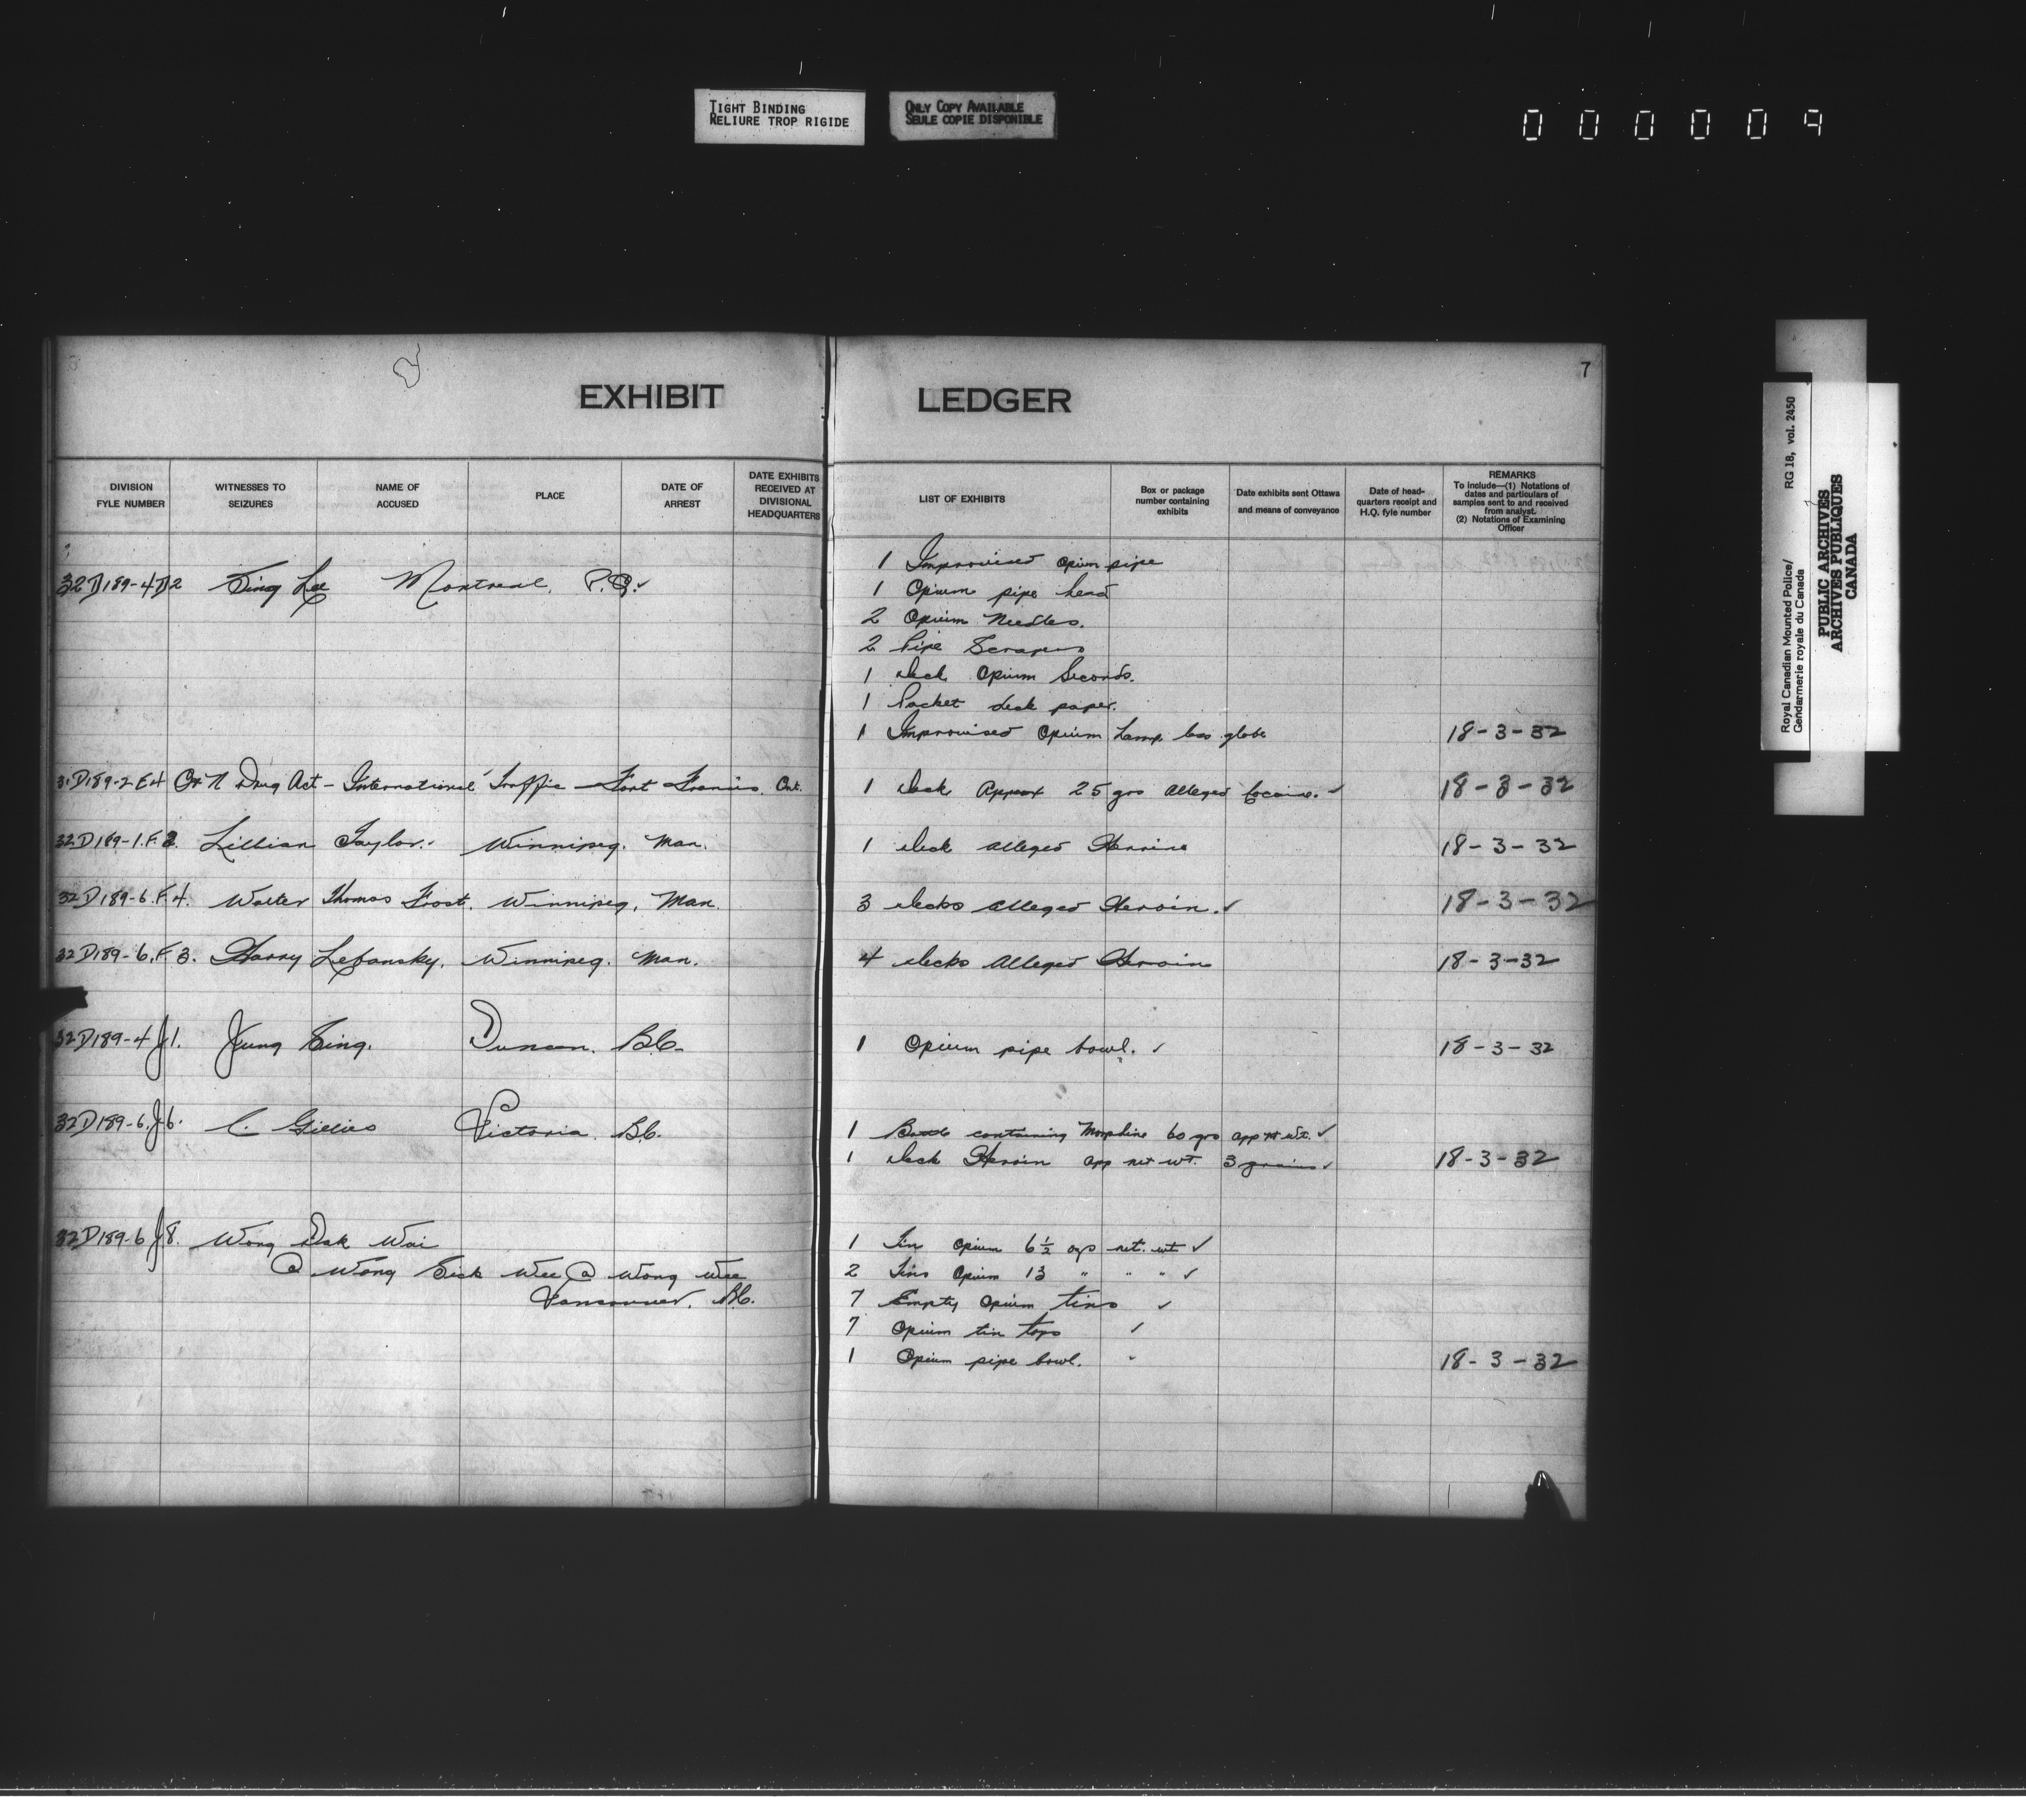 TIGHT BINDING
RELIURE TROP RIGIDE
ONLY COPY AVAILABLE
SEULE COPIE DISPONIBLE
000009
7
EXHIBIT LEDGER
DIVISION FYLE NUMBER
WITNESSES TO SEIZURES
NAME OF ACCUSED
PLACE
DATE OF ARREST
DATE EXHIBITS RECEIVED AT DIVISIONAL HEADQUARTERS
LIST OF EXHIBITS
Box or package number containing exhibits
Date exhibits sent Ottawa and means of conveyance
Date of head-quarters receipt and H.Q. fyle number
REMARKS
To include—(1) Notations of dates and particulars of samples sent to and received from analyst.
(2) Notations of Examining Officer
1 Improvised opium pipe
32D189-4D2 Sing Lee Montreal, P.Q. 1 Opium pipe head
2 Opium Needles.
2 Pipe Scrapers
1 deck Opium Seconds.
1 Packet deck paper.
1 Improvised Opium Lamp less globe 18-3-32
31D189-2E4 O & N Drug Act - International Traffic - Fort Francis, Ont. 1 Deck Approx 25 grs alleged Cocaine. ✓ 18-3-32
32D189-1.F.3. Lillian Taylor. Winnipeg. Man. 1 deck alleged Heroin 18-3-32
32D189-6.F.4. Walter Thomas Frost. Winnipeg, Man. 3 decks alleged Heroin. ✓ 18-3-32
32D189-6.F.3. Harry Lefansky. Winnipeg. Man. 4 decks alleged Heroin 18-3-32
32D189-4J1. Jung Sing. Duncan. B.C. 1 Opium pipe bowl. ✓ 18-3-32
32D189-6.J6. C. Gillies Victoria. B.C. 1 Bottle containing Morphine 60 grs app nt wt. ✓
1 Deck Heroin app net wt. 3 grains ✓ 18-3-32
32D189-6J8. Wong Dak Wai 1 Tin Opium 6½ ozs net. wt ✓
@ Wong Sick Wee @ Wong Wee 2 Tins Opium 13 " " " ✓
Vancouver. B.C. 7 Empty Opium tins ✓
7 Opium tin tops ✓
1 Opium pipe bowl. 18-3-32
Royal Canadian Mounted Police/
Gendarmerie royale du Canada
RG 18, vol. 2450
PUBLIC ARCHIVES
ARCHIVES PUBLIQUES
CANADA